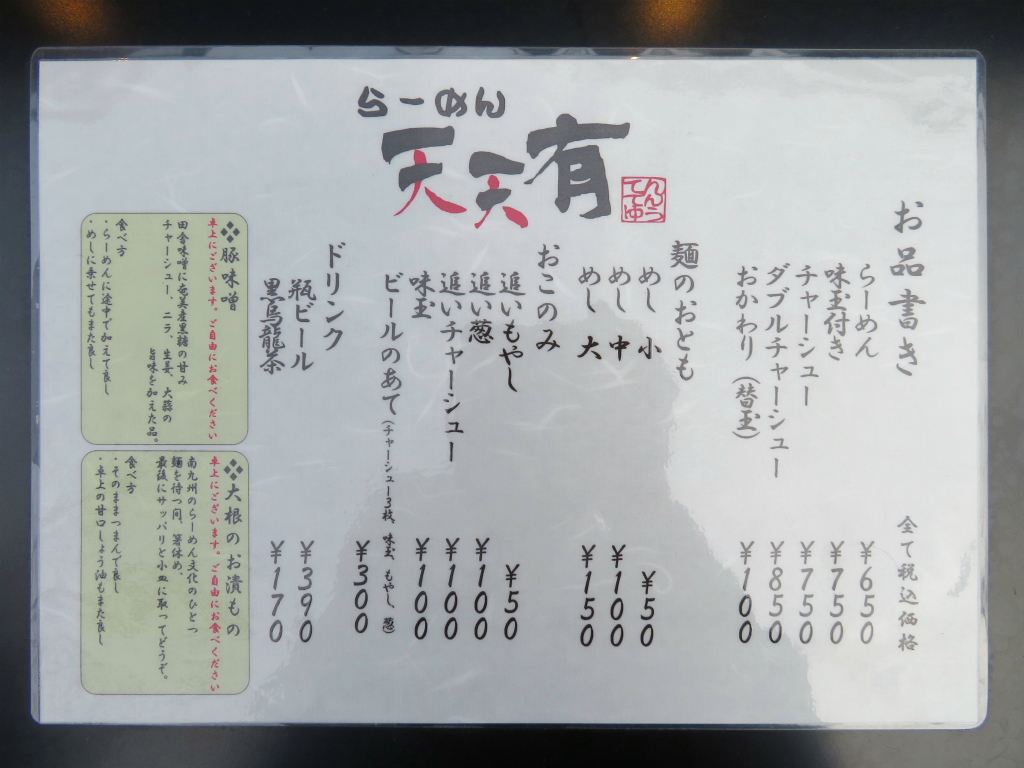 らーめん
天天有
てんてんゆう
お品書き
全て税込価格
らーめん ¥650
味玉付き ¥750
チャーシュー ¥750
ダブルチャーシュー ¥850
おかわり(替玉) ¥100
麺のおとも
めし 小 ¥50
めし 中 ¥100
めし 大 ¥150
おこのみ
追いもやし ¥50
追い葱 ¥100
追いチャーシュー ¥100
味玉 ¥100
ビールのあて(チャーシュー3枚、味玉、もやし、葱) ¥300
ドリンク
瓶ビール ¥390
黒烏龍茶 ¥170
❖豚味噌
卓上にございます。ご自由にお食べください
田舎味噌に奄美産黒糖の甘み
チャーシュー、ニラ、生姜、大蒜の
旨味を加えた品。
食べ方
・らーめんに途中で加えて良し
・めしに乗せてもまた良し
❖大根のお漬もの
卓上にございます。ご自由にお食べください
南九州のらーめん文化のひとつ
麺を待つ間、箸休め、
最後にサッパリと小皿に取ってどうぞ。
食べ方
・そのままつまんで良し
・卓上の甘口しょう油もまた良し